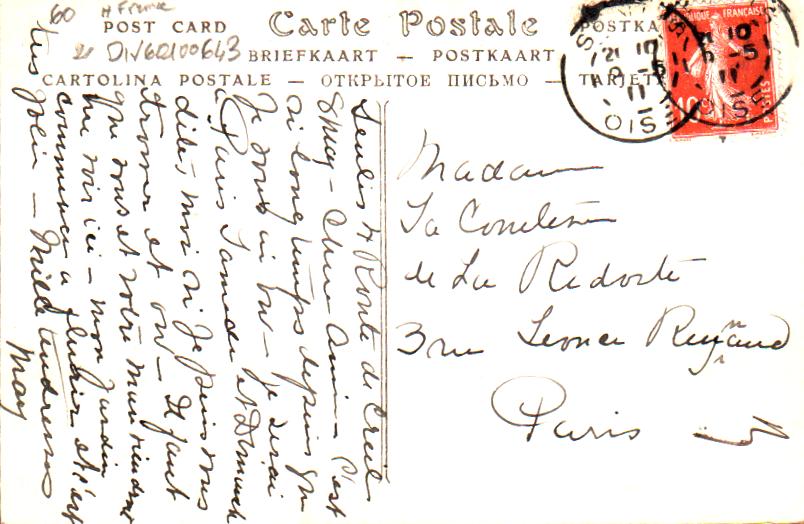 60 # France
2 DIV60100643
POST CARD Carte Postale POSTKA
BRIEFKAART — POSTKAART
CARTOLINA POSTALE — ОТКРЫТОЕ ПИСЬМО — TARJETA
FRANÇAISE
10
POSTES
21 10
5
11
OISE
21 10
5
11
OISE
Senlis 4 Route de Creil
8 May – Chère Amie – C'est
si longtemps depuis que
je vous ai vu – Je serai
à Paris Samedi et Dimanche
dites moi si je puis vous
trouver et où – Il faut
que vous et votre mari viendrez
me voir ici – mon jardin
commence à fleurir et c'est
très joli – Mille tendresses
May
Madame
La Comtesse
de La Redorte
3 rue Leonce Reynaud
Paris